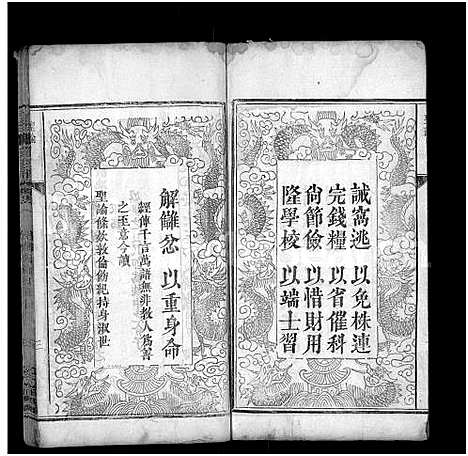 誡窩逃 以免株連
完錢糧 以省催科
尙節儉 以惜財用
隆學校 以端士習
解讎忿 以重身命
經傳千言萬語無非教人爲善
之至意今讀
聖諭條欵敦倫飭紀持身淑世